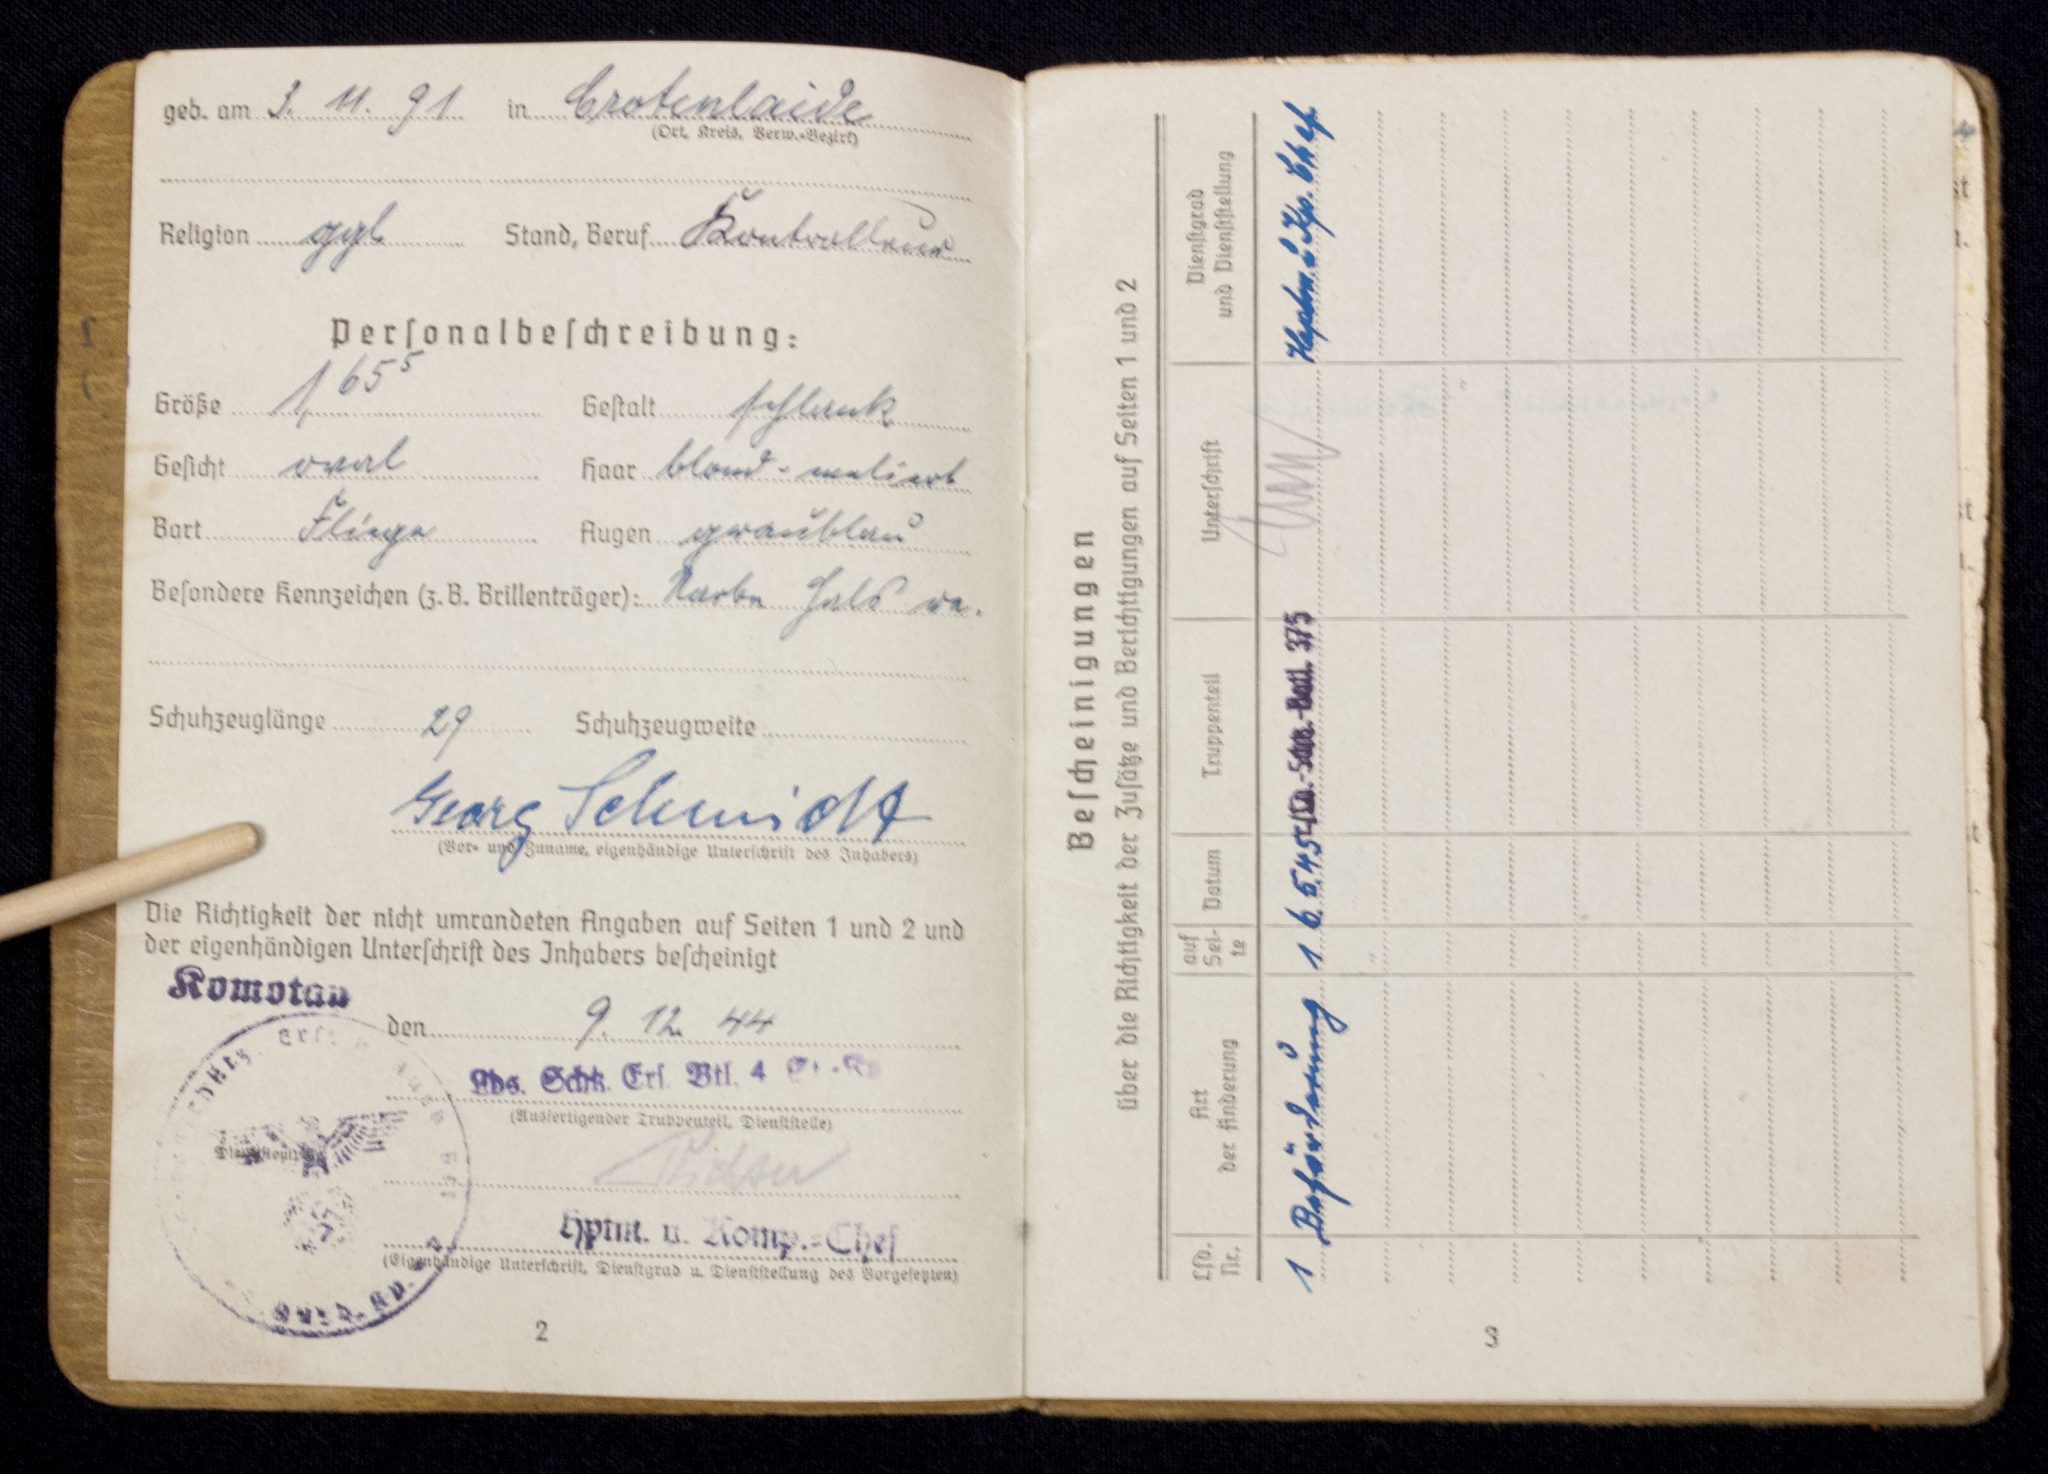 geb. am 3. 11. 91 in Crotenlaide
(Ort, Kreis, Verw.-Bezirk)
Religion ggl. Stand, Beruf Kontrolleur
Personalbeschreibung:
Größe 1,65⁵ Gestalt schlank
Gesicht oval Haar blond-meliert
Bart Fliege Augen graublau
Besondere Kennzeichen (z. B. Brillenträger): Narbe Hals re.
Schuhzeuglänge 29 Schuhzeugweite
Georg Schmidt
(Vor- und Zuname, eigenhändige Unterschrift des Inhabers)
Die Richtigkeit der nicht umrandeten Angaben auf Seiten 1 und 2 und
der eigenhändigen Unterschrift des Inhabers bescheinigt
Komotau
den 9. 12. 44
Lds. Schtz. Ers. Btl. 4
(Ausfertigender Truppenteil, Dienststelle)
Hptm. u. Komp.-Chef
(Eigenhändige Unterschrift, Dienstgrad u. Dienststellung des Vorgesetzten)
2
Bescheinigungen
über die Richtigkeit der Zusätze und Berichtigungen auf Seiten 1 und 2
Lfd. Nr. Art der Änderung auf Seite Datum Truppenteil Unterschrift Dienstgrad und Dienststellung
1 Beförderung 1 6.5.45 Batl. 375 Hauptm. u. Kp. Chef
3